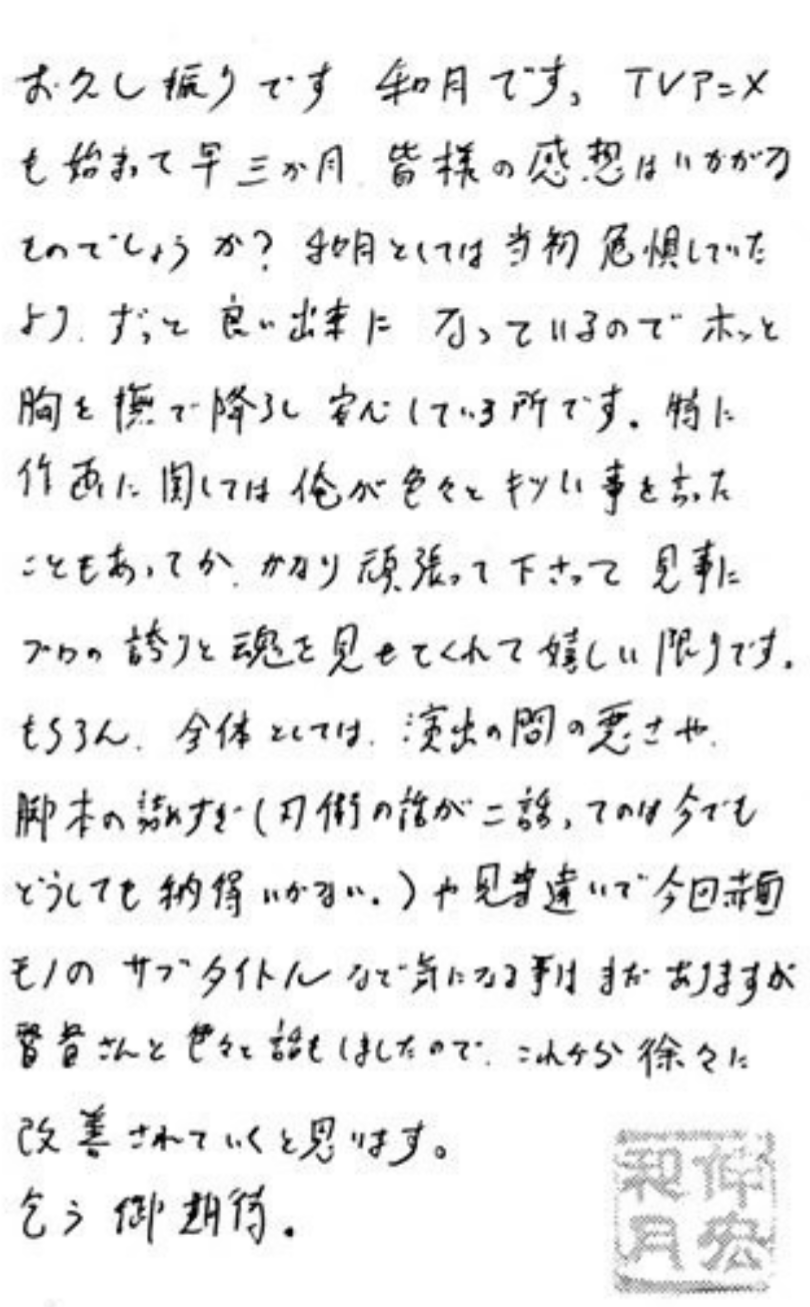 お久し振りです 和月です。 TVアニメ
も始まって早三か月、皆様の感想はいかがな
ものでしょうか? 和月としては当初危惧していた
より、ずっと良い出来になっているのでホッと
胸を撫で降ろし安心している所です。特に
作画に関しては俺が色々とキツい事を言った
こともあってか、かなり頑張って下さって見事に
プロの誇りと魂を見せてくれて嬉しい限りです。
もちろん、全体としては、演出の間の悪さや、
脚本の詰めすぎ(刃衛の話が二話ってのは今でも
どうしても納得いかない。)や見当違いで今回赤面
モノのサブタイトルなど気になる事はまだありますが
監督さんと色々と話もしましたので、これから徐々に
改善されていくと思います。
乞う御期待。
和月
伸宏